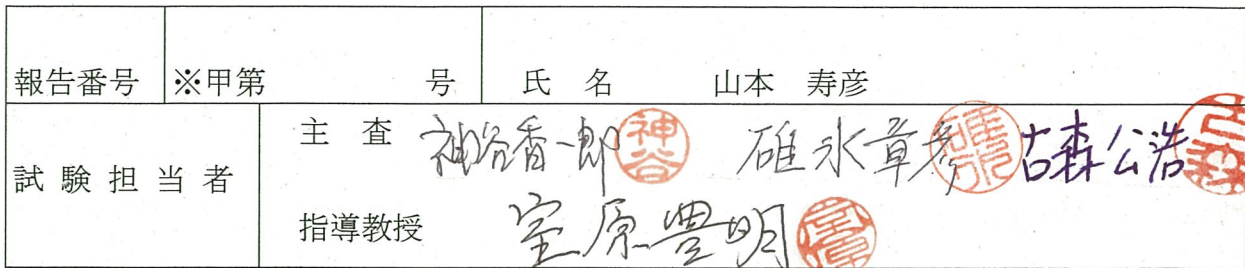 報告番号 ※甲第 号 氏 名 山本 寿彦
試験担当者 主 査 神谷香一郎 神谷 碓氷章彦 碓氷 古森公浩 古森
指導教授 室原豊明 室原